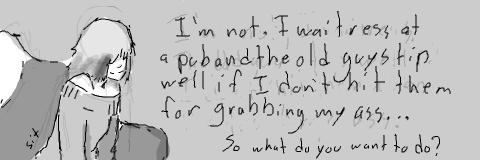 I'm not. I waitress at
a pub and the old guys tip
well if I don't hit them
for grabbing my ass...
So what do you want to do?
six